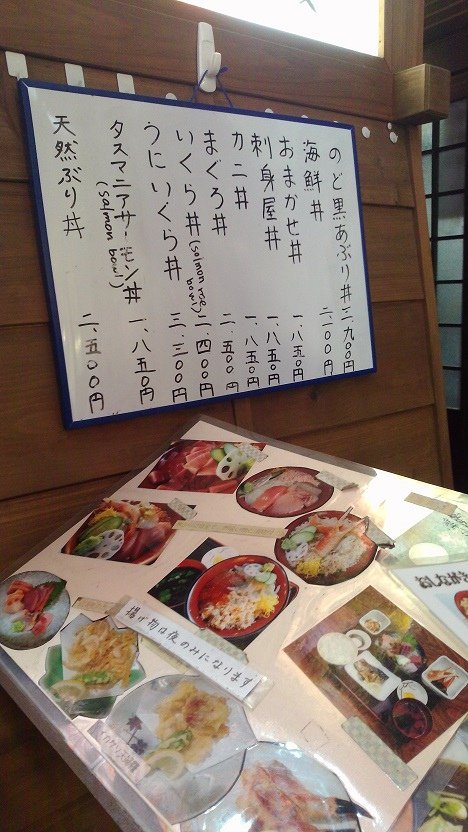 のど黒あぶり丼 二、九〇〇円
海鮮丼 二、一〇〇円
おまかせ丼 一、八五〇円
刺身屋丼 一、八五〇円
カニ丼 一、八五〇円
まぐろ丼 二、五〇〇円
いくら丼 (salmon roe bowl) 二、四〇〇円
うにいくら丼 三、三〇〇円
タスマニアサーモン丼 (salmon bowl) 一、八五〇円
天然ぶり丼 二、五〇〇円
揚げ物は夜のみになります